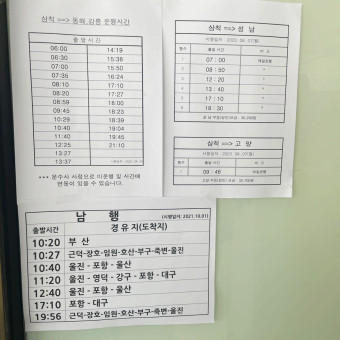 삼척 ==> 동해 강릉 운행시간
출 발 시 간
06:00 14:19
06:30 15:38
07:00 15:50
07:35 16:24
08:10 17:10
08:20 17:27
08:59 18:00
09:23 18:35
10:29 19:04
11:40 19:45
12:25 21:10
13:27
13:37
*** 운수사 사정으로 미운행 및 시간에
변동이 있을 수 있습니다.
삼척 ==> 성남
횟수 출발 시간 비 고
1 07 : 00 매일운행
2 08 : 50 "
3 12 : 20 "
4 13 : 40 "
5 17 : 10 "
6 18 : 30 "
삼척 ==> 고양
횟수 출발 시간 비 고
1 09 : 46
남 행 (시행일자: 2021.10.01)
출발시간 경 유 지(도착지)
10:20 부 산
10:27 근덕-장호-임원-호산-부구-죽변-울진
10:40 울진 - 포항 - 울산
11:20 울진 - 영덕 - 강구 - 포항 - 대구
12:40 울진 - 포항 - 울산
17:10 포항 - 대구
19:56 근덕-장호-임원-호산-부구-죽변-울진